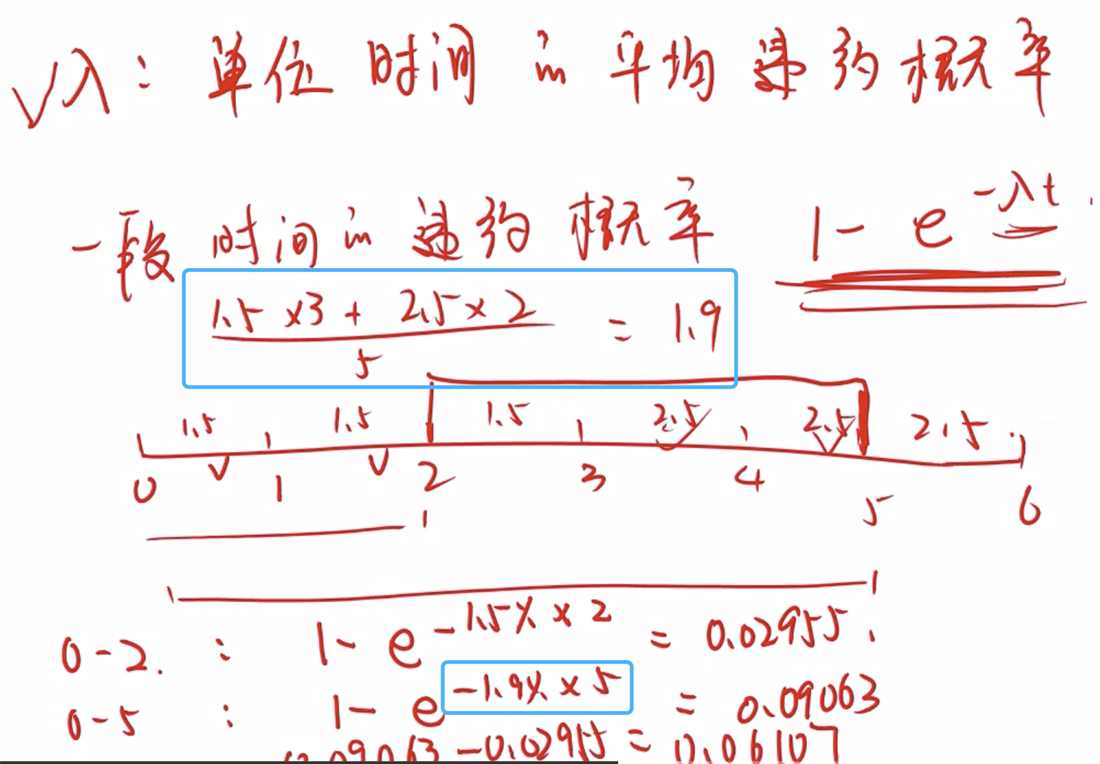 √λ：单位时间内平均违约概率
一段时间内违约概率 1-e^{-λt}
(1.5×3+2.5×2)/5 = 1.9
1.5 1.5 1.5 2.5 2.5 2.5
0 1 2 3 4 5 6
0-2. : 1-e^{-1.5%×2} = 0.02955.
0-5 : 1-e^{-1.9%×5} = 0.09063
0.09063-0.02955=0.06107